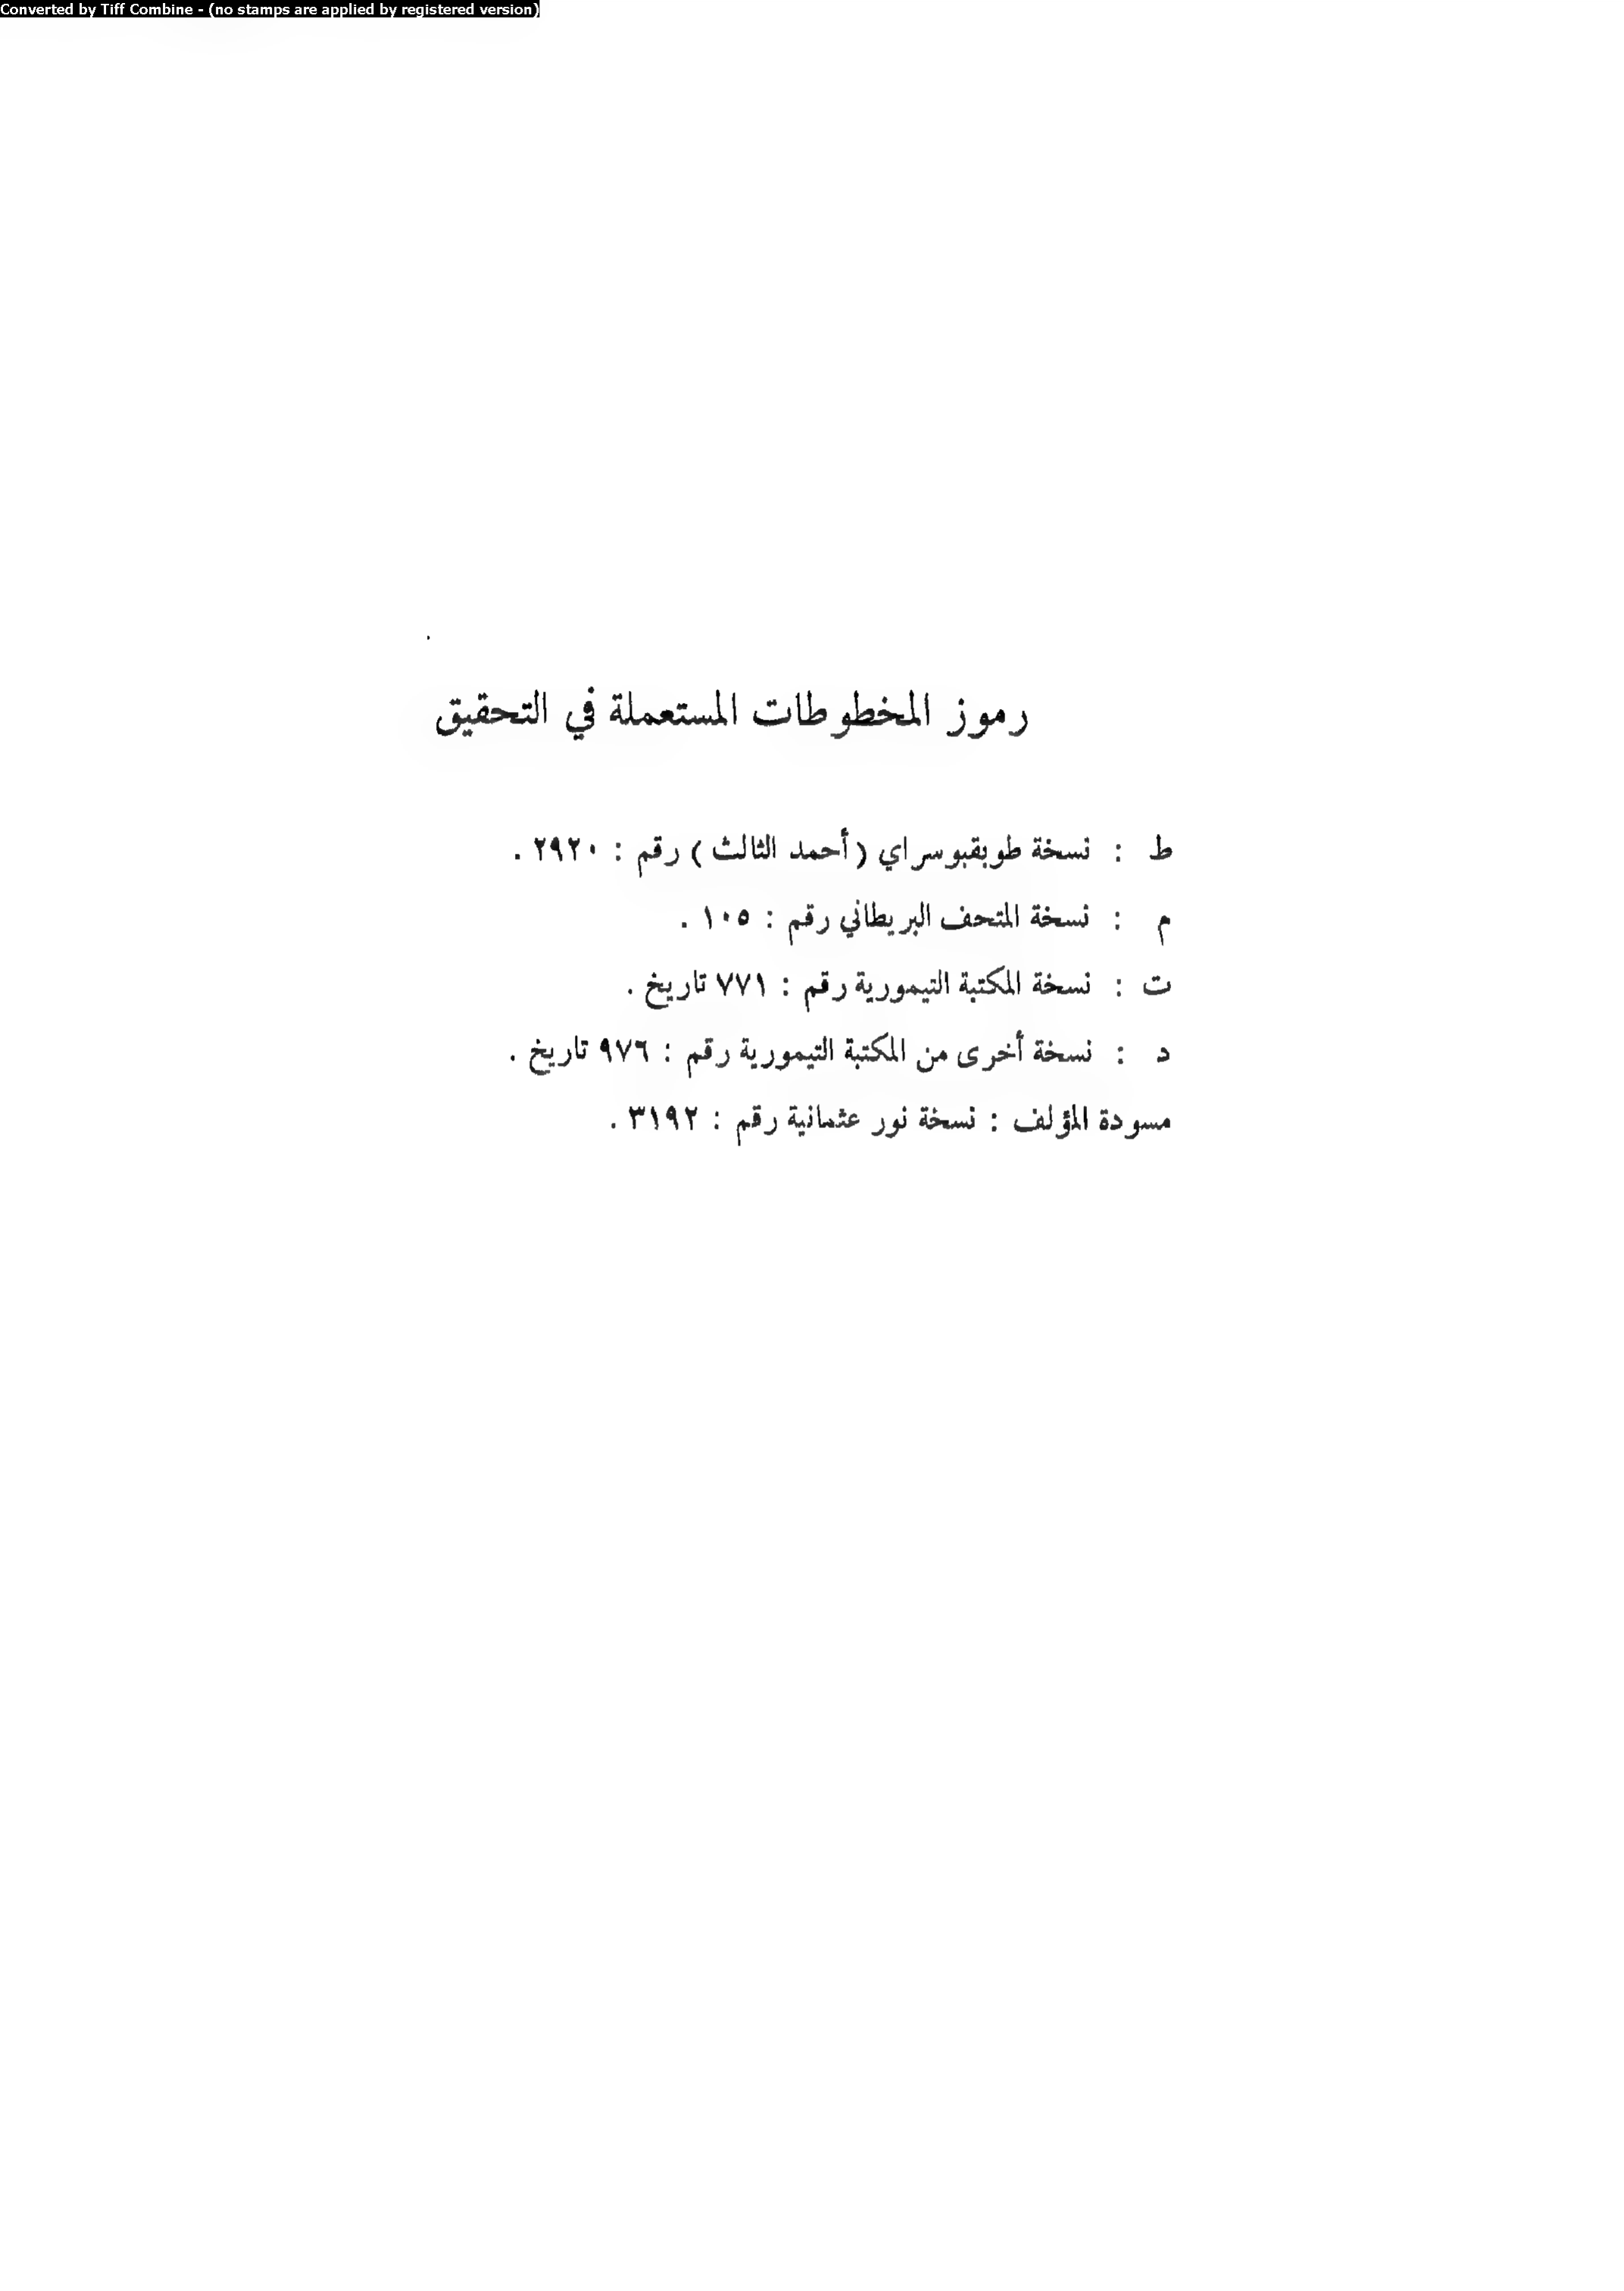 Converted by Tiff Combine - (no stamps are applied by registered version)
رموز المخطوطات المستعملة في التحقيق
ط : نسخة طوبقبوسراي (أحمد الثالث) رقم : ٢٩٢٠ .
م : نسخة المتحف البريطاني رقم : ١٠٥ .
ت : نسخة المكتبة التيمورية رقم : ٧٧١ تاريخ .
د : نسخة أخرى من المكتبة التيمورية رقم : ٩٧٦ تاريخ .
مسودة المؤلف : نسخة نور عثمانية رقم : ٣١٩٢ .